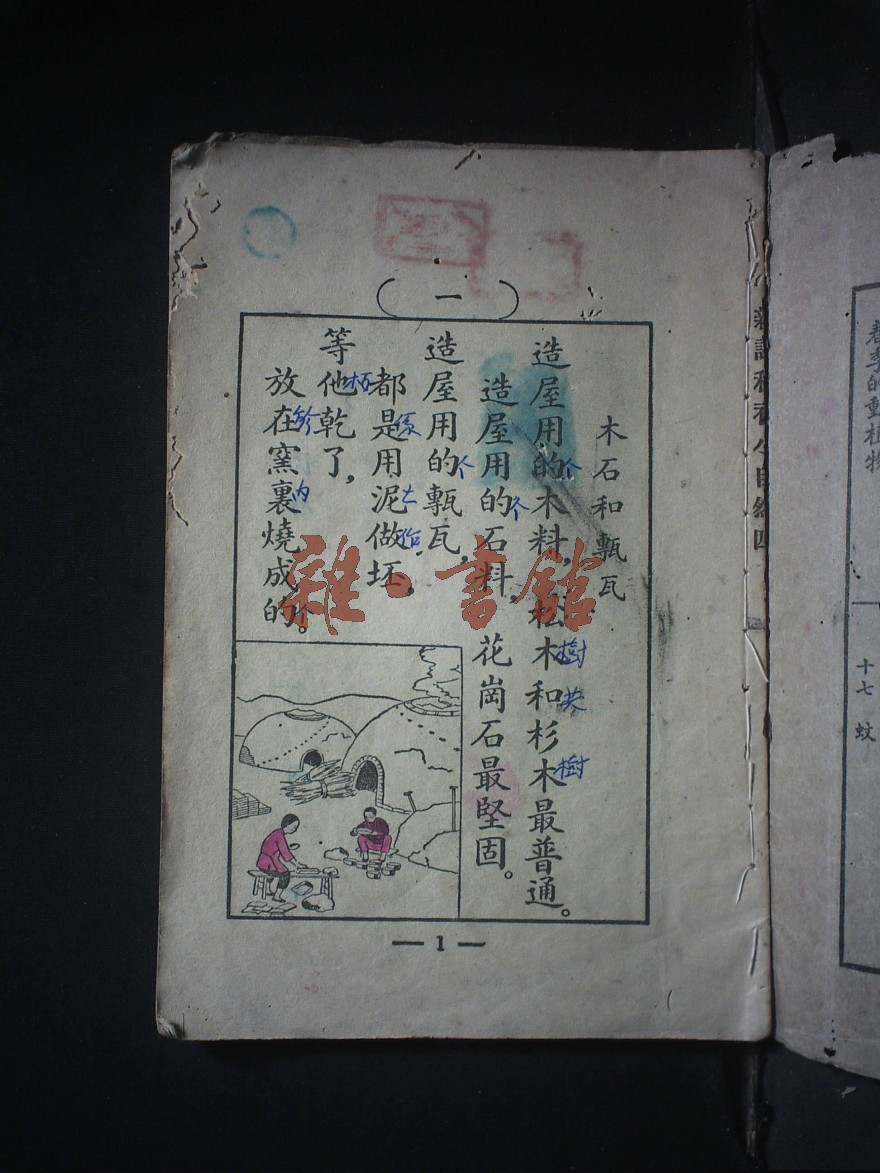 一
木石和甎瓦
造屋用的木料，松木和杉木最普通。
造屋用的石料，花崗石最堅固。
造屋用的甎瓦，
都是用泥做坯，
等他乾了，
放在窯裏燒成的。
个
樹
共
樹
个
个
係
土
内
个
1
雜·書館
小自然四
春季的動植物
十七 蚊